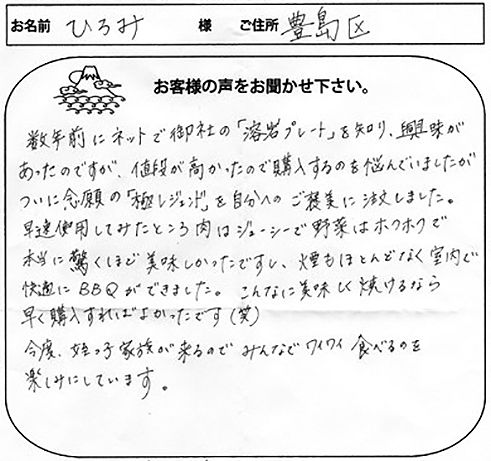 お名前 ひろみ 様 ご住所 豊島区
お客様の声をお聞かせ下さい。
数年前にネットで御社の「溶岩プレート」を知り、興味が
あったのですが、値段が高かったので購入するのを悩んでいましたが
ついに念願の「極レジェンド」を自分へのご褒美に注文しました。
早速使用してみたところ肉はジューシーで野菜はホクホクで
本当に驚くほど美味しかったですし、煙もほとんどなく室内で
快適にBBQができました。こんなに美味しく焼けるなら
早く購入すればよかったです(笑)
今度、姪っ子家族が来るのでみんなでワイワイ食べるのを
楽しみにしています。